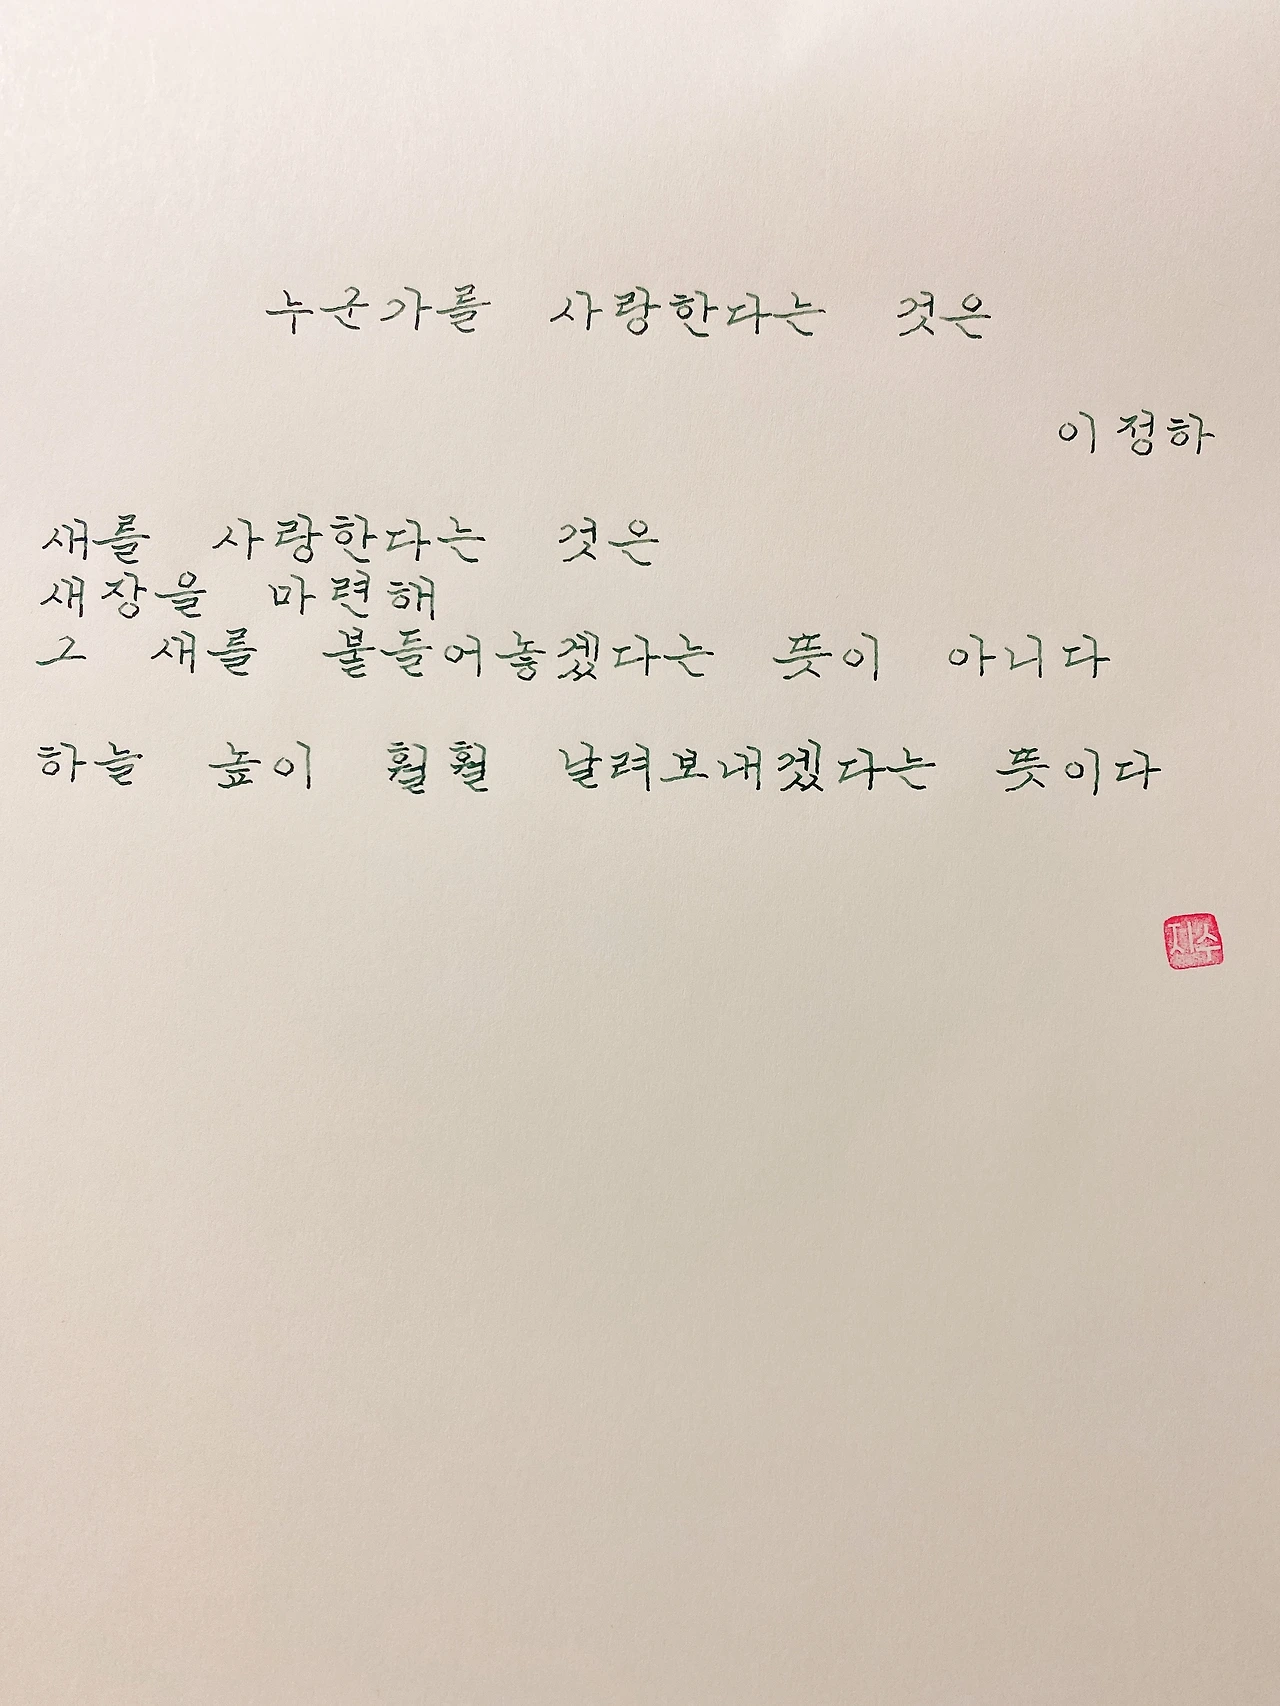 누군가를 사랑한다는 것은
이정하
새를 사랑한다는 것은
새장을 마련해
그 새를 붙들어놓겠다는 뜻이 아니다
하늘 높이 훨훨 날려보내겠다는 뜻이다
지수